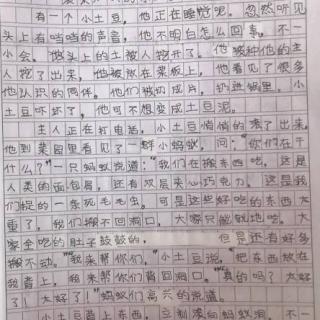 有一个小土豆，他正在睡觉呢。忽然听见
头上有咚咚的声音，他不明白怎么回事。不一
小会。他头上的土被人挖开了。他被种他的主
人挖了出来，他被放在菜板上，他看见了很多
他认识的同伴。他们被切成片，扔进锅里。小
土豆吓坏了，他可不想变成土豆泥。
主人正在打电话，小土豆悄悄的溜了出来。
他到菜园里看见了一群小蚂蚁，问：“你们在干
什么？”一只蚂蚁说道：“我们在搬东西吃，这是
人类的面包屑，还有双层夹心巧克力。这是我
们捉的一条死毛毛虫。可是这些好吃的东西太
重了，我们搬不回洞口，大家只能就地吃。大
家全吃的肚子鼓鼓的，但是还有好多
搬不动。”“我来帮你们。”小土豆说，“把东西放在
我背上，我来帮你们背回洞口。”“真的吗？太好
了！太好了！”蚂蚁们高兴的说道。
小土豆背上东西，立刻滚向蚂蚁洞。不一